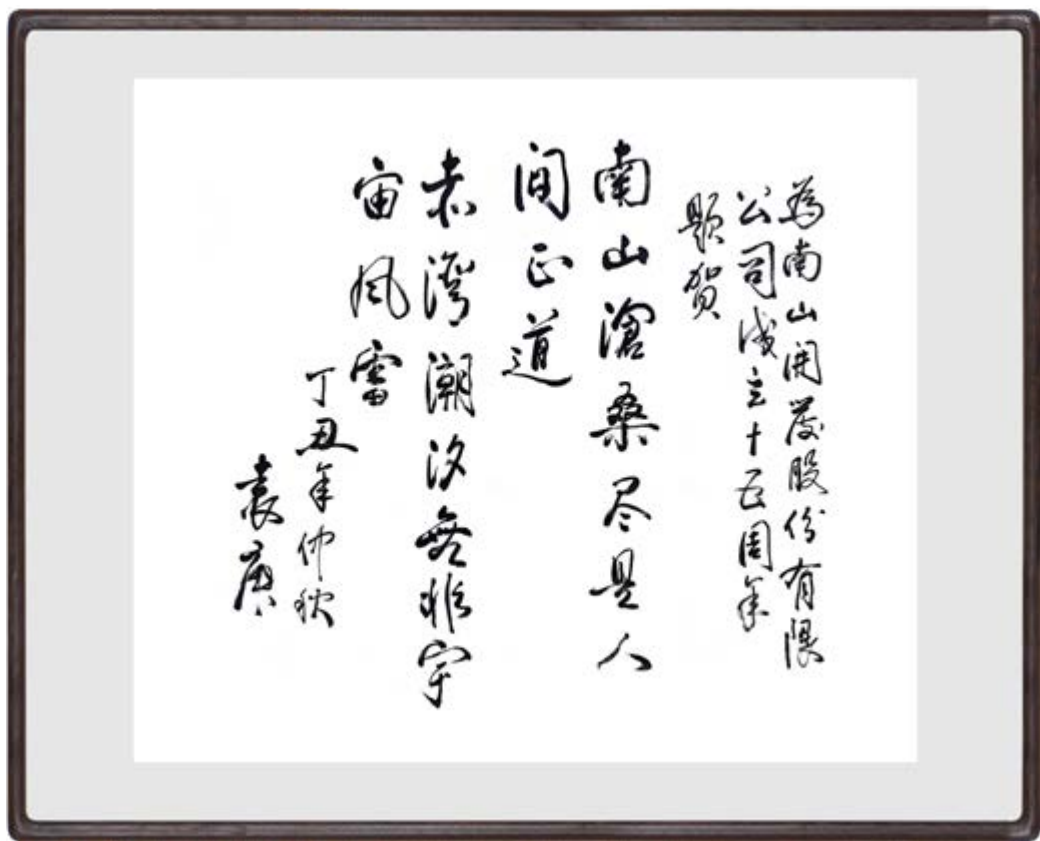 為南山開發股份有限
公司成立十五周年
題贺
南山滄桑尽是人
间正道
赤湾潮汐無非宇
宙风雷
丁丑年仲秋
袁庚